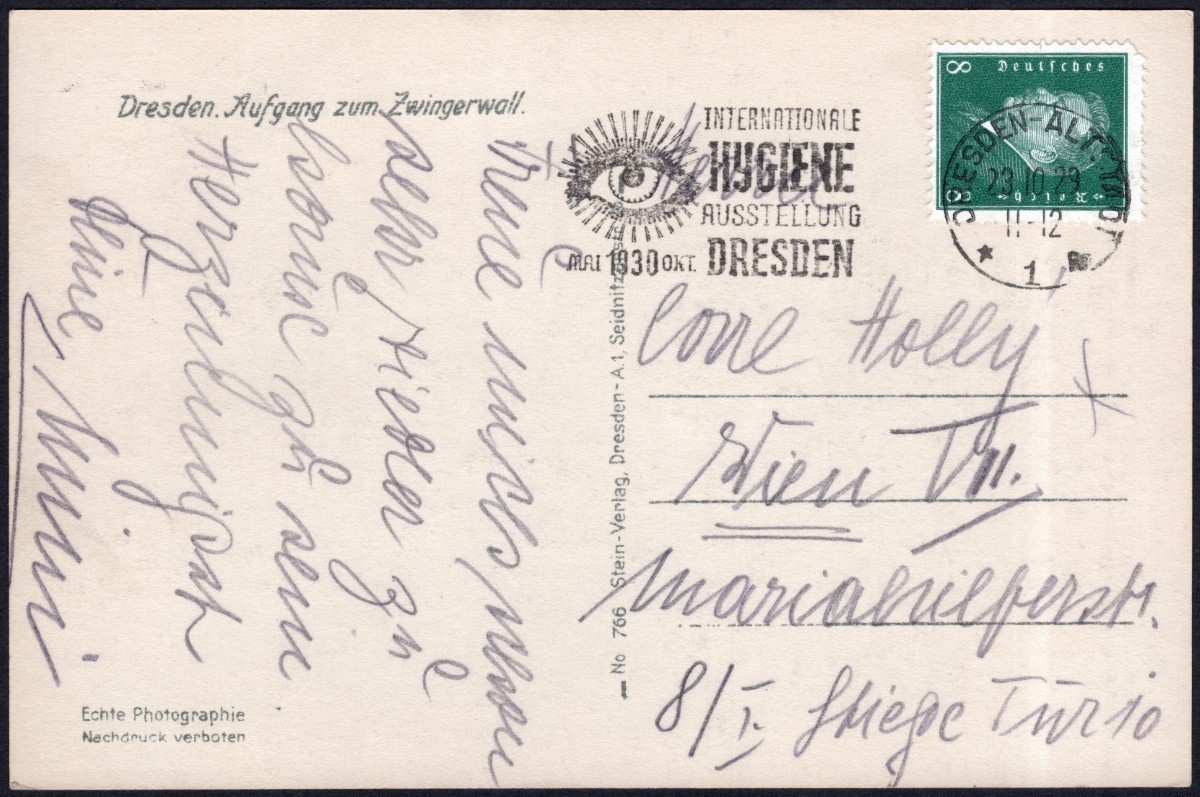 Dresden. Aufgang zum Zwingerwall.
INTERNATIONALE
HYGIENE
AUSSTELLUNG
DRESDEN
MAI 1930 OKT.
8 Deutsches
8 Reich
DRESDEN-ALTSTADT
23.10.29
11-12
* 1
Freue mich schon
sehr wieder zu
hause zu sein
Deine Mimi
Holly
Wien VII.
Mariahilferstr.
8/I. Stiege Tür 10
No 766 Stein-Verlag, Dresden-A.1, Seidnitz
Echte Photographie
Nachdruck verboten